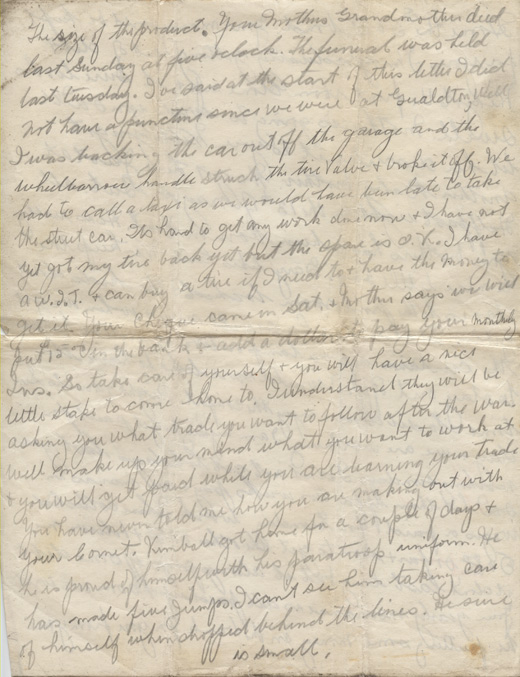 The size of the product. Your Mothers Grandmother died
last Sunday at five oclock. The funeral was held
last tuesday. I've said at the start of this letter I did
not have a puncture since we were at Gualdton, Well
I was backing the car out off the garage and the
wheelbarrow handle struck the tire valve & broke it off. We
had to call a taxi as we would have been late to take
the street car. Its hard to get any work done now & I have not
yet got my tire back yet but the spare is O.K. I have
a W.I.T. & can buy a tire if I need to & have the money to
get it. Your cheque came in Sat. & Mother says we will
put 15 in the bank & add a dollar to pay your monthly
Ins. So take care of yourself & you will have a nice
little stake to come home to. I understand they will be
asking you what trade you want to follow after the war.
well make up your mind what you want to work at
& you will get paid while you are learning your trade
You have never told me how you are making out with
your Cornet. Kimball got home for a couple of days &
H is proud of himself with his paratroop uniform. He
has made five Jumps. I can't see him taking care
of himself when dropped behind the lines. He sure
is small.